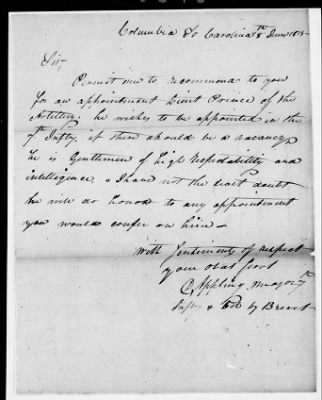 Columbia So Carolina 8th June 1815
Sir,
Permit me to recommend to you
for an appointment Lieut Prince of the
Artillery. he wishes to be appointed in the
7th Infty, if there should be a vacancy,
he is Gentlemen of high respectability and
intelligence, & I have not the least doubt
he will do honor to any appointment
you would confer on him —
With Sentiments of respect
your obdt Servt
D Appling Major 7th
Infty & Col by Brevet